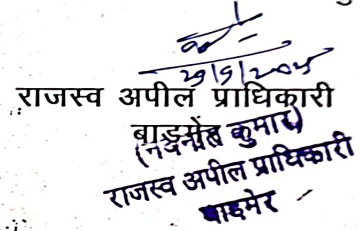 29/5/2025
राजस्व अपील प्राधिकारी
बाड़मेर
कुमार)
राजस्व अपील प्राधिकारी
बाड़मेर